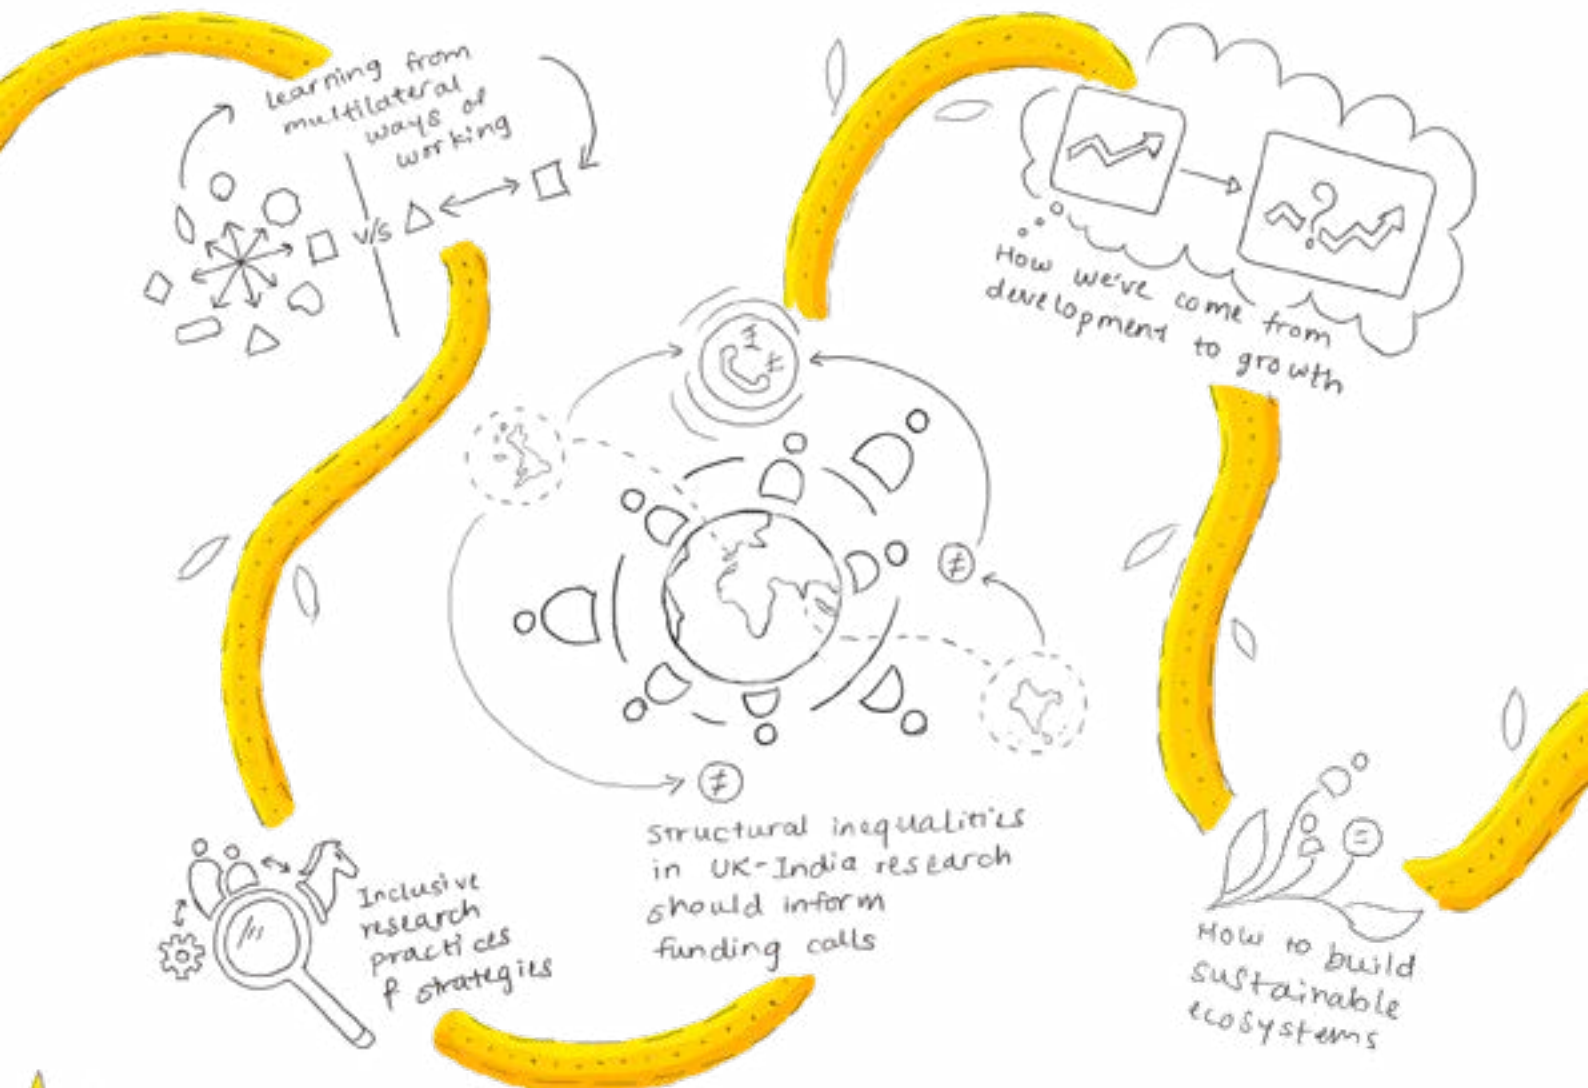 Learning from
multilateral
ways of
working
v/s
How we've come from
development to growth
?
Structural inequalities
in UK-India research
should inform
funding calls
Inclusive
research
practices
& strategies
How to build
sustainable
ecosystems